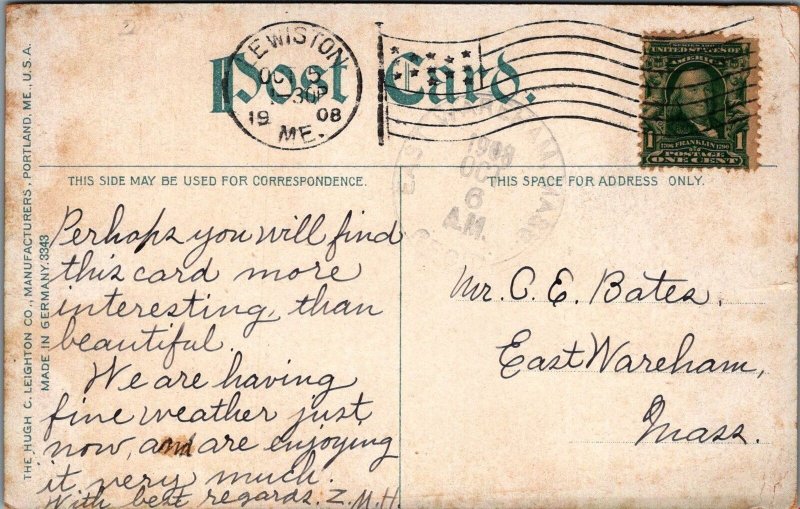 THE HUGH C. LEIGHTON CO., MANUFACTURERS, PORTLAND, ME., U.S.A.
MADE IN GERMANY. 3343
Post Card.
LEWISTON
OCT 5
30P
19 08
ME.
SERIES 1902
UNITED STATES OF
AMERICA
1 1706 FRANKLIN 1790 1
POSTAGE
ONE CENT
EAST WAREHAM, MASS.
1908
OCT
6
A.M.
THIS SIDE MAY BE USED FOR CORRESPONDENCE.
THIS SPACE FOR ADDRESS ONLY.
Perhaps you will find
this card more
interesting, than
beautiful.
We are having
fine weather just
now, and are enjoying
it very much.
With best regards. Z. M. H.
Mr. C. E. Bates,
East Wareham,
Mass.